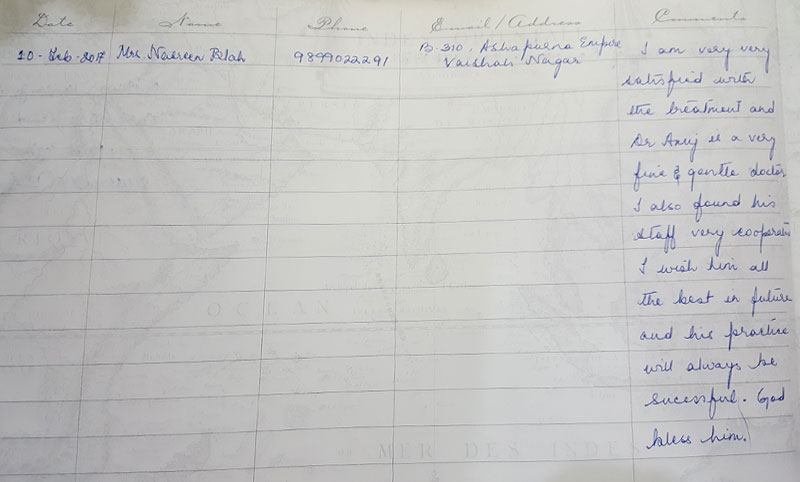 Date Name Phone Email/Address Comments
10-Feb-2017 Mrs Nasreen 9899022291 B-310, Ashapurna Empire
Vaishali Nagar
I am very very
satisfied with
the treatment and
Dr Anuj is a very
fine & gentle doctor
I also found his
staff very cooperative
I wish him all
the best in future
and his practice
will always be
sucessful. God
bless him.
OCEAN
MER DES INDES